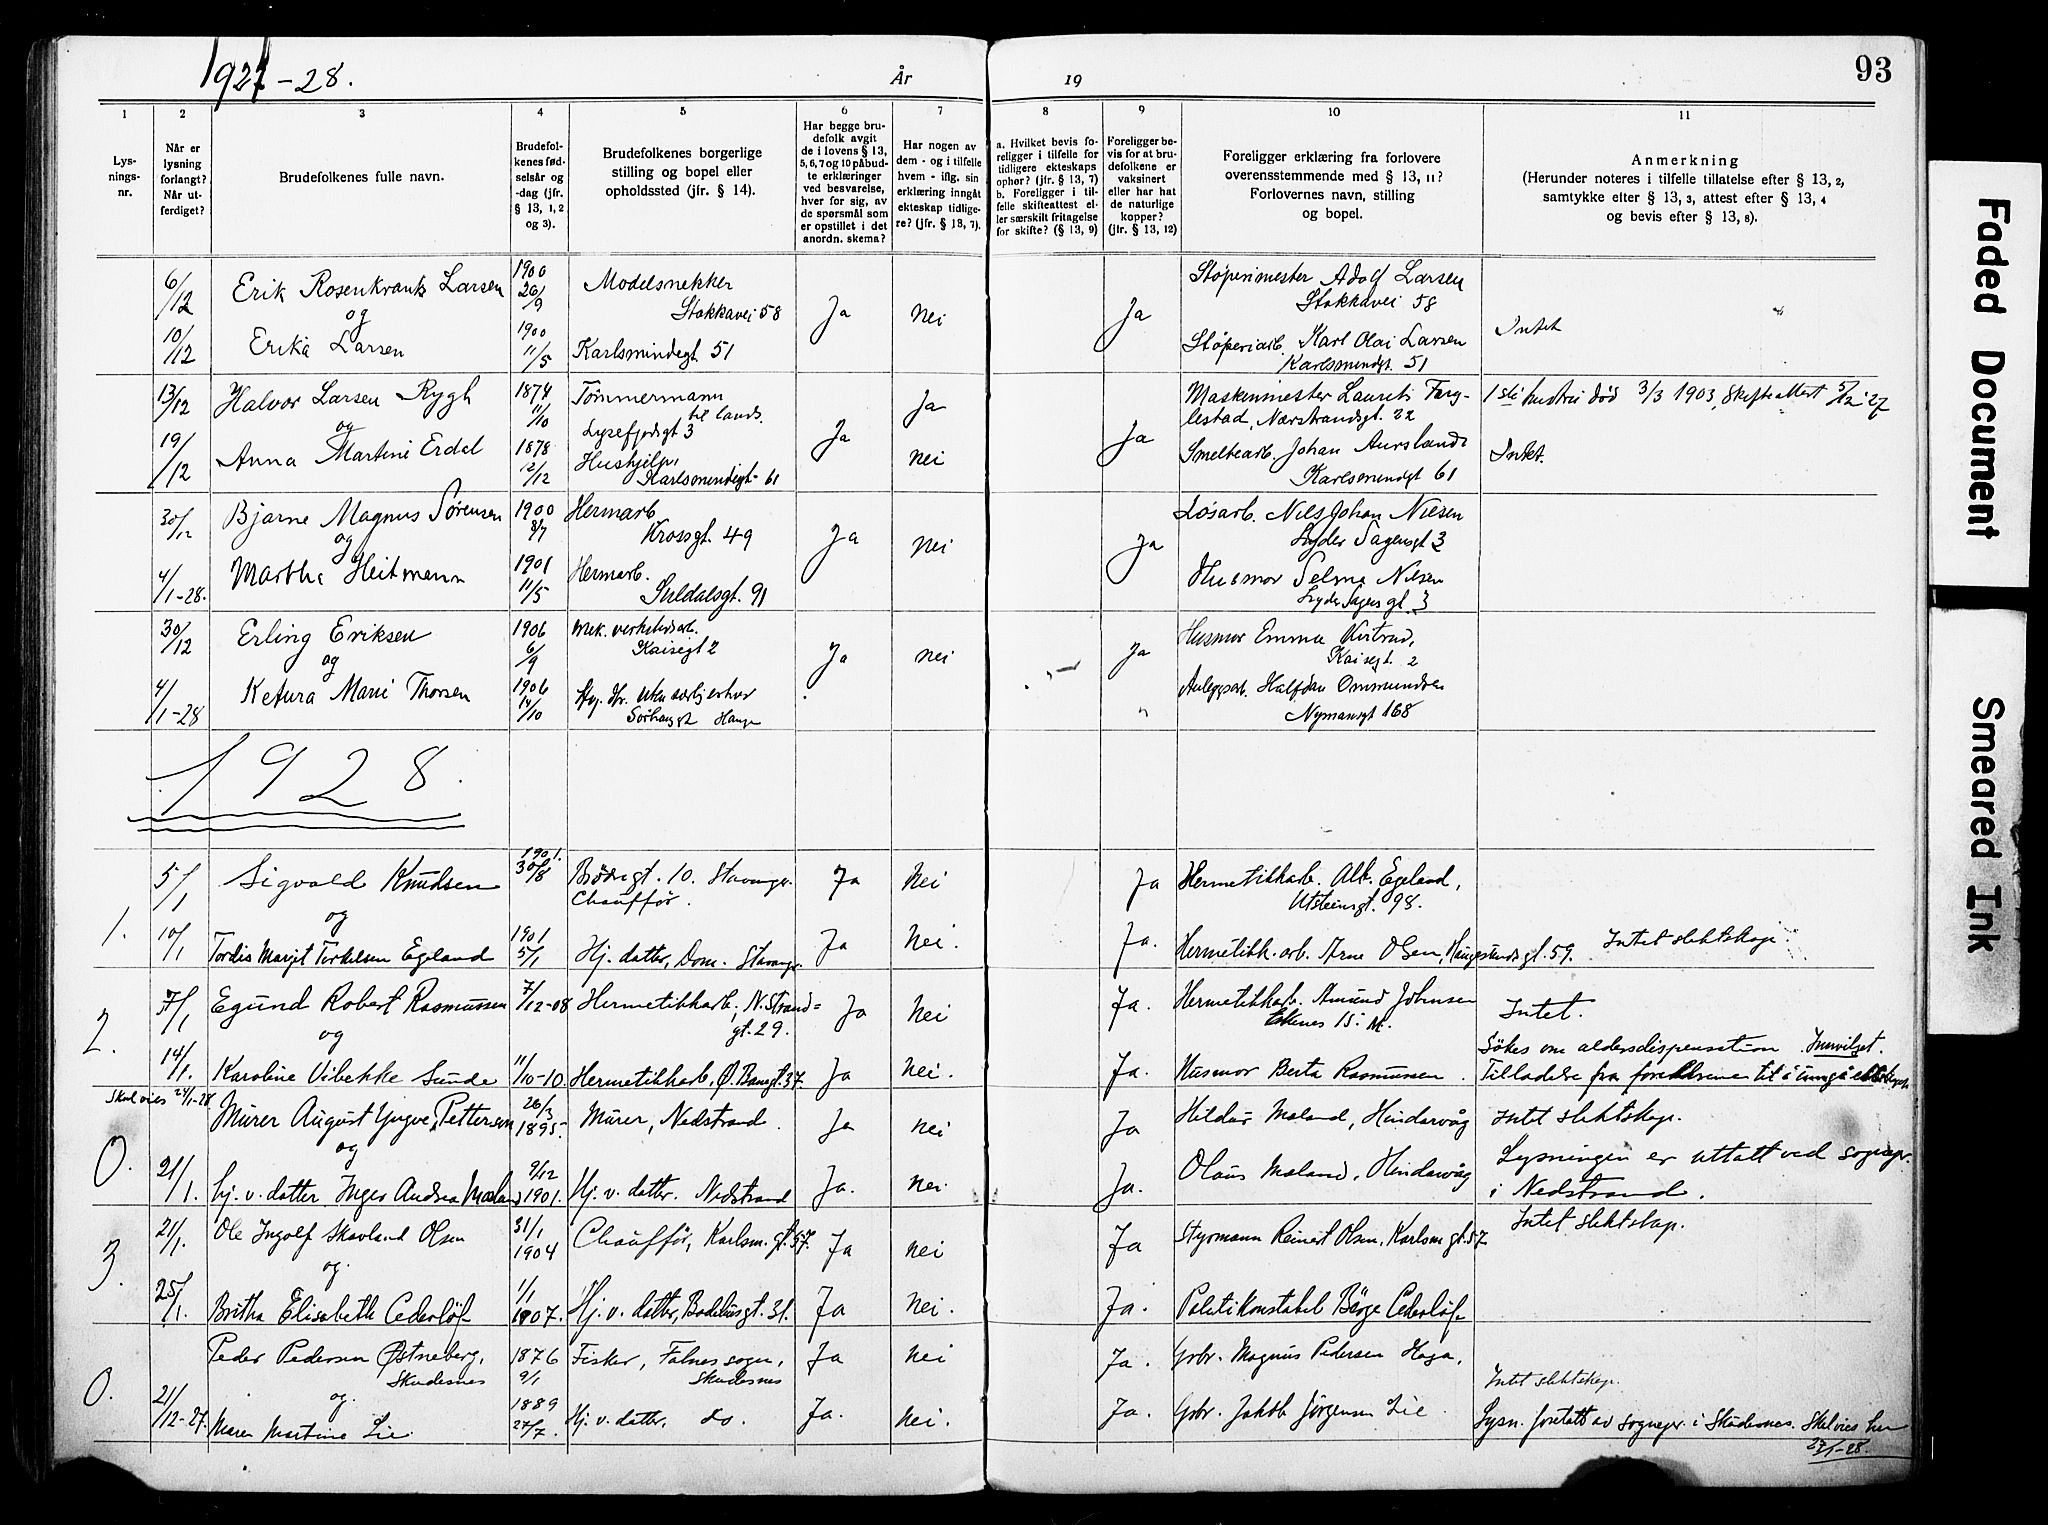 1927-28.
År
19
93
1
2
3
4
5
6
7
8
9
10
11
Lys-
nings-
nr.
Når er
lysning
forlangt?
Når ut-
ferdiget?
Brudefolkenes fulle navn.
Brudefol-
kenes fød-
selsår og
-dag (jfr.
§ 13, 1, 2
og 3).
Brudefolkenes borgerlige
stilling og bopel eller
opholdssted (jfr. § 14).
Har begge bru-
defolk avgit
de i lovens § 13,
5, 6, 7 og 10 påbud-
te erklæringer
ved besvarelse,
hver for sig, av
de spørsmål som
er opstillet i det
anordn. skema?
Har nogen av
dem - og i tilfelle
hvem - iflg. sin
erklæring inngått
ekteskap tidlige-
re? (jfr. § 13, 7).
a. Hvilket bevis fo-
religger i tilfelle for
tidligere ekteskaps
ophør? (jfr. § 13, 7)
b. Foreligger i til-
felle skifteattest el-
ler særskilt fritagelse
for skifte? (§ 13, 9)
Foreligger be-
vis for at bru-
defolkene er
vaksinert
eller har hat
de naturlige
kopper?
(jfr. § 13, 12)
Foreligger erklæring fra forlovere
overensstemmende med § 13, 11?
Forlovernes navn, stilling
og bopel.
Anmerkning
(Herunder noteres i tilfelle tillatelse efter § 13, 2,
samtykke efter § 13, 3, attest efter § 13, 4
og bevis efter § 13, 8).
6/12
Erik Rosenkrants Larsen
1900
26/9
Modelsnekker
Stokkavei 58
Ja
nei
Ja
Støperimester Adolf Larsen
Stokkavei 58
og
10/12
Erika Larsen
1900
11/5
Karlsmindegt. 51
Støperiarb. Karl Olai Larsen
Karlsmindgt. 51
Intet
13/12
Halvor Larsen Rygh
1874
11/10
Tømmermann
til lands.
Lysefjordsgt 3
Ja
Ja
Ja
Maskinmester Laurits Fag-
lestad, Nærstrandsgt. 22
1ste hustru død 3/3 1903, Skifteattest 5/12 27
og
19/12
Anna Martini Erdal
1878
12/12
Hushjelp,
Karlsmindegt. 61
nei
Smeltearb. Johan Aursland
Karlsmindgt 61
Intet.
30/12
Bjarne Magnus Sørensen
1900
8/7
Hermarb.
Krossgt. 49
Ja
nei
Ja
Løsarb. Nils Johan Nilsen
Lyder Sagensgt 3
og
4/1-28.
Martha Heitmann
1901
11/5
Hermarb.
Suldalsgt. 91
Husmor Selma Nilsen
Lyder Sagens gt 3
30/12
Erling Eriksen
1906
6/9
Mek. verkstedarb.
Kaisegt 2
Ja
nei
Ja
Husmor Emma
Kaisegt. 2
og
4/1-28
Ketura Marie Thorsen
1906
14/10
Anleggsarb. Halfdan Ommundsen
Nymansgt 168
1928.
1.
5/1
Sigvald Knudsen
1901.
30/8
Brødregt. 10. Stavanger.
Chauffør.
Ja
Nei
Ja
Hermetikkarb. Alb. Egeland,
Utsteinsgt. 98.
og
10/1
Tordis Margit Torkelsen Egeland
1901
5/1
Hj. datter, Dom. Stavanger
Ja
Nei.
Ja.
Hermetikk. arb. Arne Olsen, Haugesundsgt. 59.
Intet slektskap.
2.
7/1
Egund Robert Rasmussen
7/12-08
Hermetikkarb; N. Strand=
gt. 29.
Ja
Nei
Ja.
Hermetikkarb. Amund Johnsen
Ekenes 15. M.
Intet.
og
14/1.
Karoline Vibekke Sunde
11/10-10.
Hermetikkarb, Ø. Banegt. 37.
Ja
Nei.
Ja.
Husmor Berta Rasmussen.
Søkes om aldersdispensation. Innvilget.
Tilladelse fra foreldrene til å inngå ekteskap
Skal vies 24/1-28
0.
Murer August Yngve Pettersen
26/3
1895.
Murer, Nedstrand.
Ja
nei
Ja
Hildur Maland, Hindervåg
Intet slektskap.
og
21/1.
hj. v. datter Inger Andrea Maland
9/12
1901.
Hj. v. datter. Nedstrand
Ja.
nei
Ja.
Olaus Maland, Hindervåg
Lysningen er uttatt ved sognepr.
i Nedstrand.
3.
21/1.
Ole Ingolf Skavland Olsen
31/1
1904
Chauffør, Karlsm. gt. 57.
Ja
nei
Ja
Styrmann Reinert Olsen, Karlsm gt. 57
Intet slektskap.
og
25/1.
Britha Elisabeth Cederløf
1/1
1907.
Hj. v. datter, Badehusgt. 31.
Ja
Nei.
Ja.
Politikonstabel Börge Cederløf
0.
Peder Pedersen Østneberg,
Skudesnes
1876
9/1
Fisker, Falnes sogn,
Skudesnes
Ja
nei
Ja.
Gbr. Magnus Pedersen Haga,
Intet slektskap.
og.
21/12-27.
Maren Martine Lie
1889
27/7.
Hj. v. datter. do.
Ja.
nei.
Ja.
Gbr. Jakob Jørgensen Lie.
Lysn. foretatt av sognepr. i Skudesnes. Skal vies her
27/1-28.
Faded Document
Smeared Ink